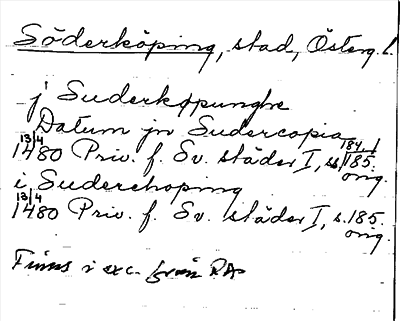 Söderköping, stad, Österg. l.
j Suderköpunghe
Datum jn Sudercopia
13/4 184,1
1480 Priv. f. Sv. städer I, s. 185.
orig.
i Suderchoping
13/4
1480 Priv. f. Sv. städer I, s. 185.
orig.
Finns i exc. från RA